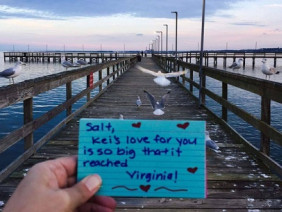 Salt,
Kei's love for you
is so big that it
reached
Virginia!